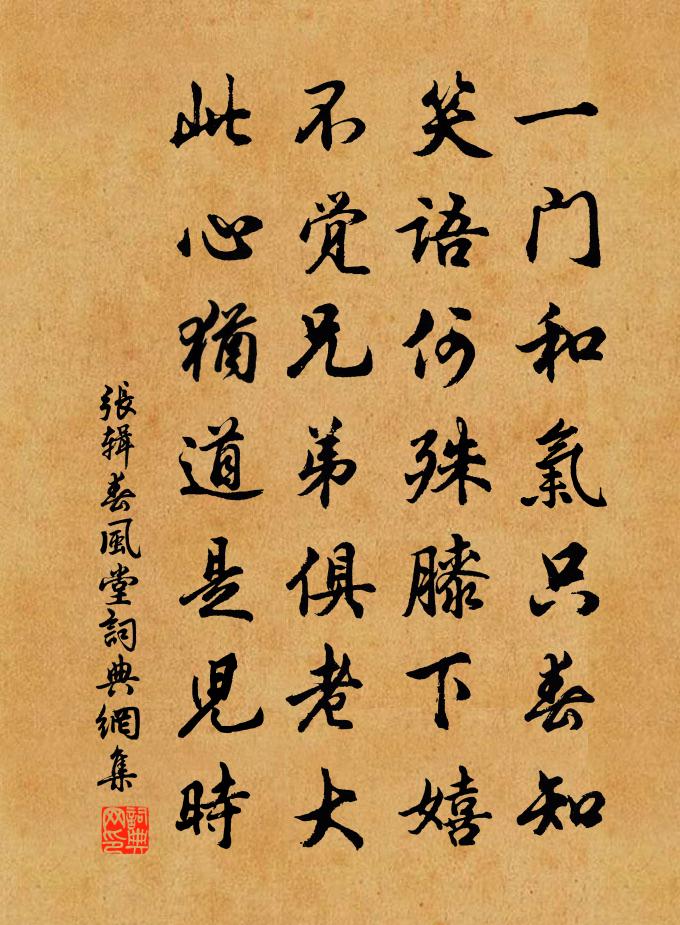 一门和氣只春知
笑語何殊膝下嬉
不觉兄弟俱老大
此心猶道是兒時
張辑春風堂詞典網集
詞典网印